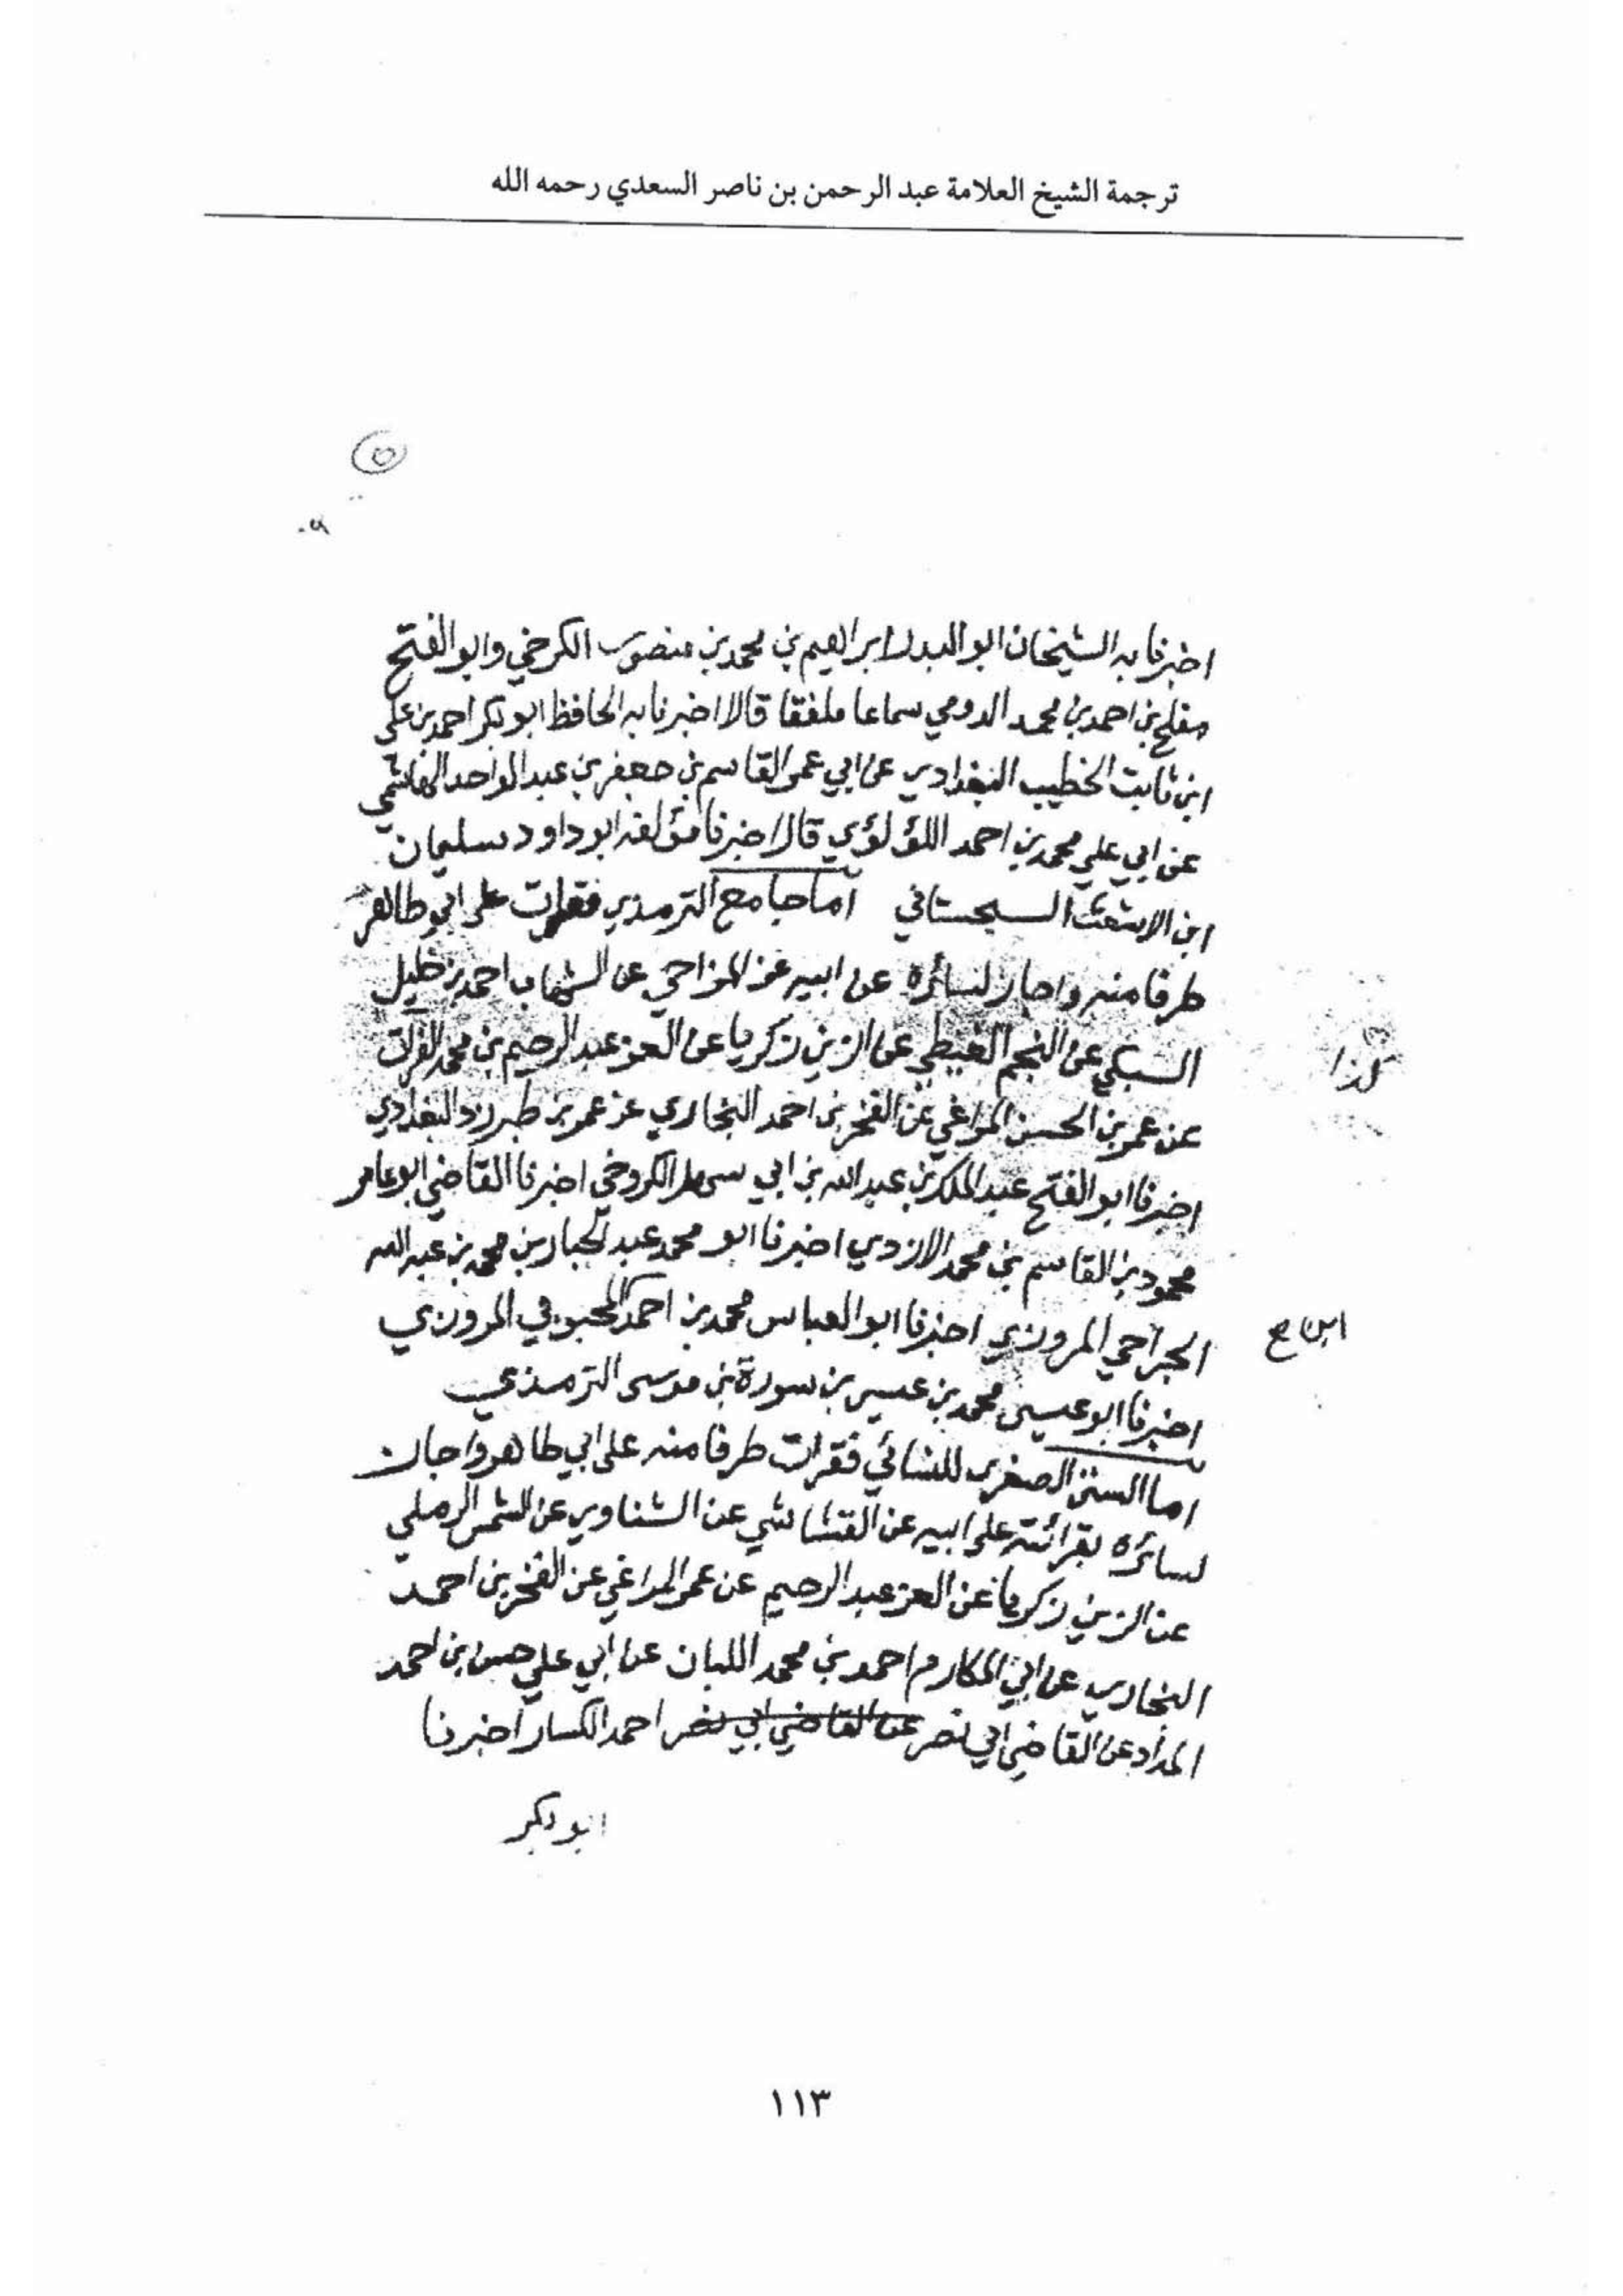 ترجمة الشيخ العلامة عبد الرحمن بن ناصر السعدي رحمه الله
٥
اخبرنا به الشيخان ابو البدر ابراهيم بن محمد بن منصور الكرخي وابو الفتح
مفلح بن احمد بن محمد الدومي سماعا ملفقا قالا اخبرنا به الحافظ ابو بكر احمد بن علي
ابن ثابت الخطيب البغدادي عن ابي عمر القاسم بن جعفر بن عبد الواحد الهاشمي
عن ابي علي محمد بن احمد اللؤلؤي قال اخبرنا مؤلفه ابو داود سليمان
ابن الاشعث السجستاني اما جامع الترمذي فقرات على ابي طاهر
طرفا منه واجاز لسائره عن ابيه عن المزاحي عن الشهاب احمد بن خليل
السبكي عن النجم الغيطي عن الزين زكريا عن العز عبد الرحيم بن محمد الفرات
كذا
عن عمر بن الحسن المراغي عن الفخر بن احمد البخاري عن عمر بن طبرزد البغدادي
اخبرنا ابو الفتح عبد الملك بن عبد الله بن ابي سهل الكروخي اخبرنا القاضي ابو عامر
محمود بن القاسم بن محمد الازدي اخبرنا ابو محمد عبد الجبار بن محمد بن عبد الله
الجراحي المروزي اخبرنا ابو العباس محمد بن احمد المحبوبي المروزي
اخبرنا ابو عيسى محمد بن عيسى بن سورة بن موسى الترمذي
اما السنن الصغرى للنسائي فقرات طرفا منه على ابي طاهر واجاز
لسائره بقرائته على ابيه عن القشاشي عن الشناوي عن الشمس الرملي
عن الزين زكريا عن العز عبد الرحيم عن عمر المراغي عن الفخر بن احمد
البخاري عن ابي المكارم احمد بن محمد اللبان عن ابي علي حسن بن احمد
المداد عن القاضي ابي نصر عن القاضي ابي نصر احمد الكسار اخبرنا
ابو بكر
١١٣